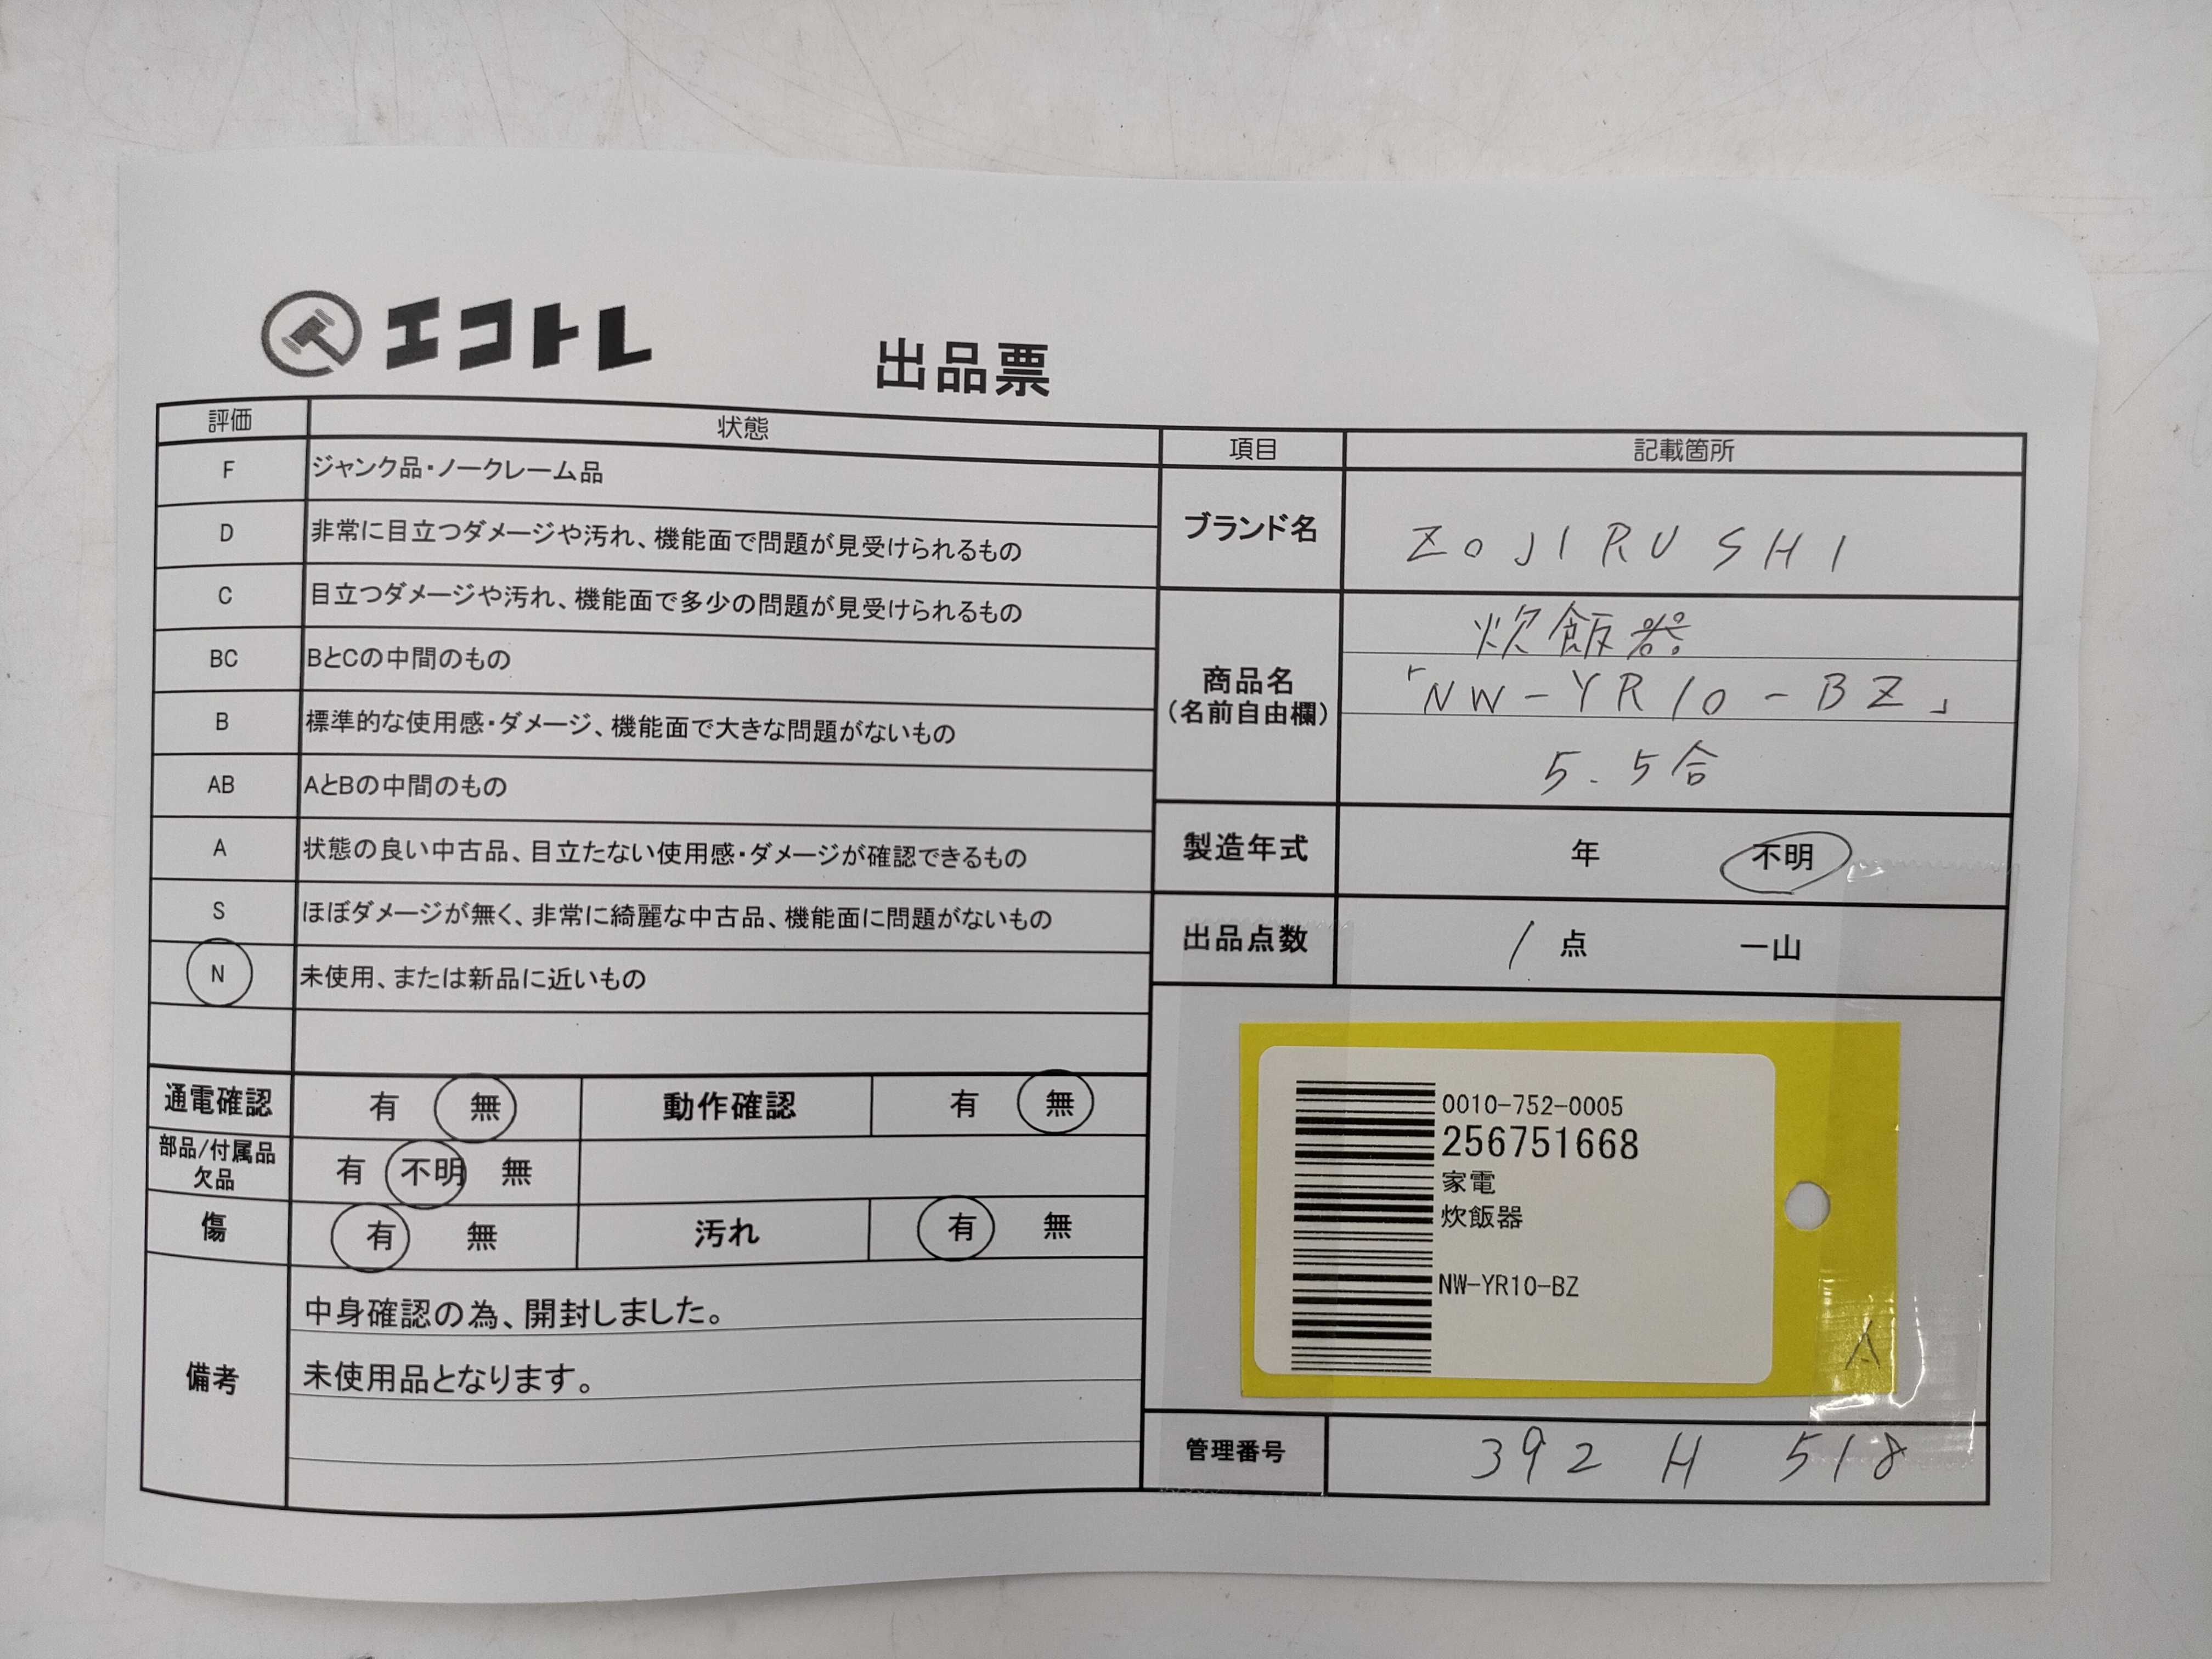 エコトレ
出品票
評価 状態
F ジャンク品・ノークレーム品
D 非常に目立つダメージや汚れ、機能面で問題が見受けられるもの
C 目立つダメージや汚れ、機能面で多少の問題が見受けられるもの
BC BとCの中間のもの
B 標準的な使用感・ダメージ、機能面で大きな問題がないもの
AB AとBの中間のもの
A 状態の良い中古品、目立たない使用感・ダメージが確認できるもの
S ほぼダメージが無く、非常に綺麗な中古品、機能面に問題がないもの
N 未使用、または新品に近いもの
通電確認 有 無 動作確認 有 無
部品/付属品
欠品 有 不明 無
傷 有 無 汚れ 有 無
備考
中身確認の為、開封しました。
未使用品となります。
項目 記載箇所
ブランド名 ZOJIRUSHI
商品名
(名前自由欄)
炊飯器
「NW-YR10-BZ」
5.5合
製造年式 年 不明
出品点数 1 点 一山
0010-752-0005
256751668
家電
炊飯器
NW-YR10-BZ
A
管理番号 392 H 518